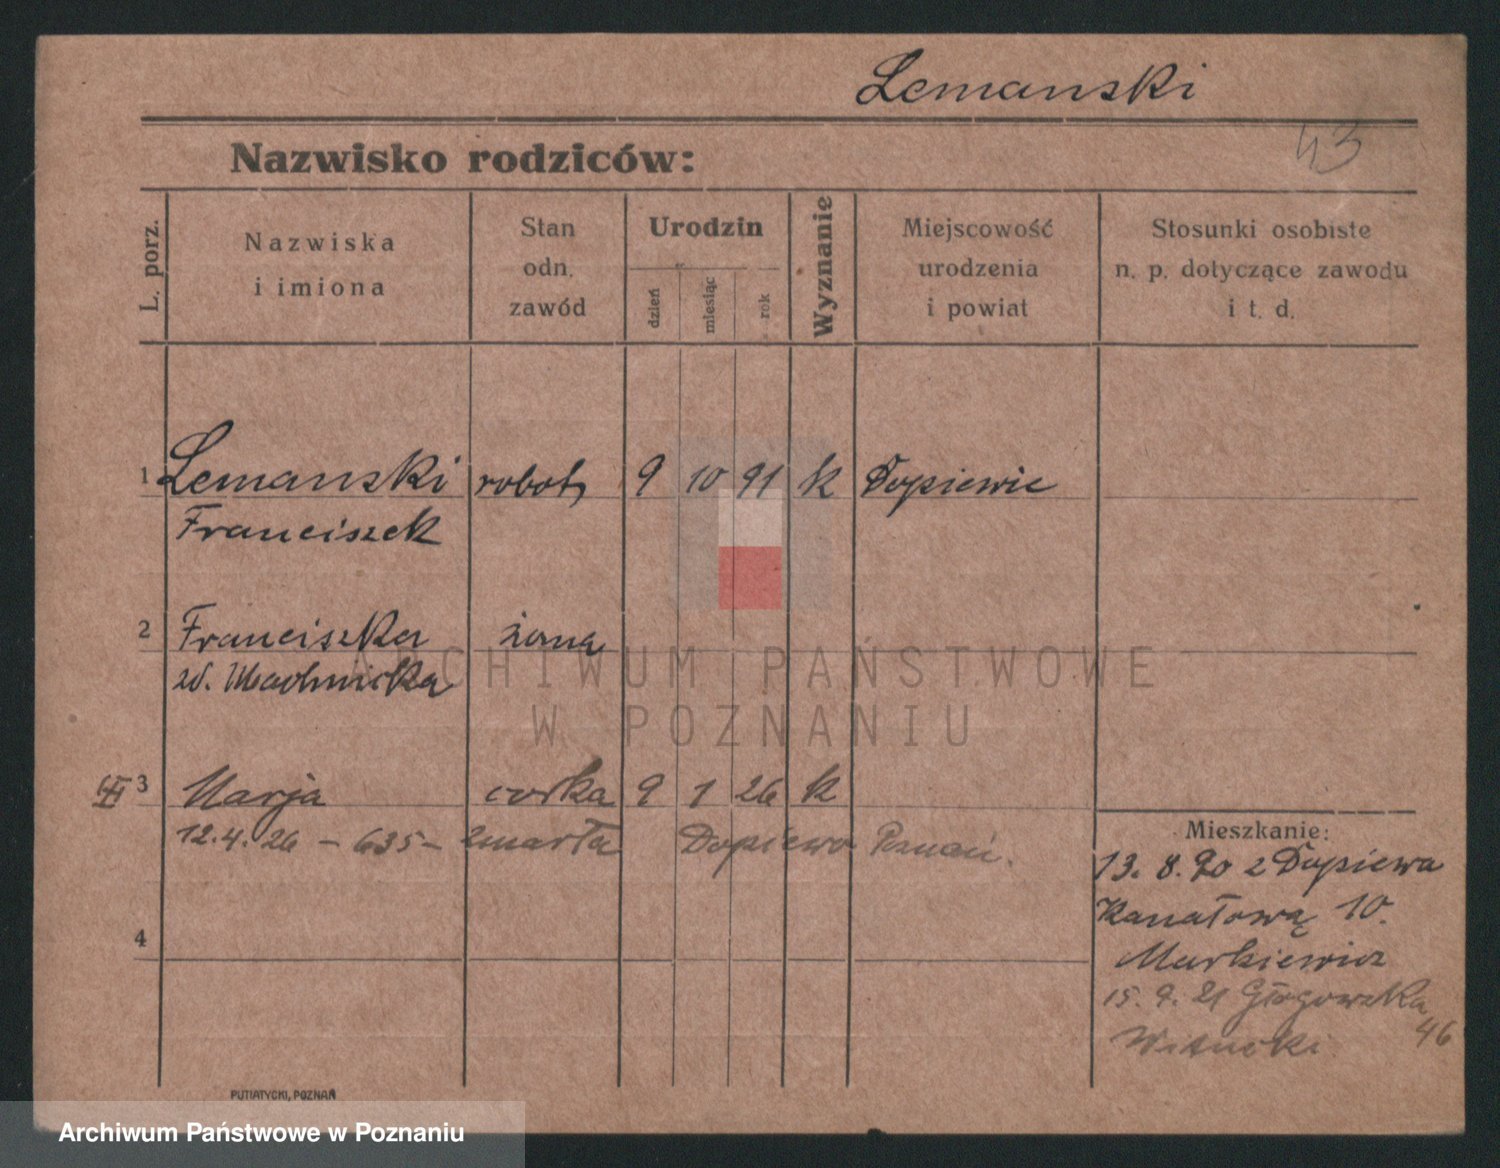 Lemanski
43
Nazwisko rodziców:
L. porz.
Nazwiska
i imiona
Stan
odn.
zawód
Urodzin
dzień
miesiąc
rok
Wyznanie
Miejscowość
urodzenia
i powiat
Stosunki osobiste
n. p. dotyczące zawodu
i t. d.
1 Lemanski robotn 9 10 91 k Dopiewie
Franciszek
2 Franciszka żona
zd. Machnicka
3 Marja corka 9 1 26 k
12.4.26 – 635 – zmarła Dopiewo Poznań.
4
Mieszkanie:
13. 8. 20 z Dopiewa
Kanałową 10.
Markiewicz
15. 9. 21 Głogowska
46
Witucki
ARCHIWUM PAŃSTWOWE
W POZNANIU
PUTIATYCKI, POZNAŃ
Archiwum Państwowe w Poznaniu